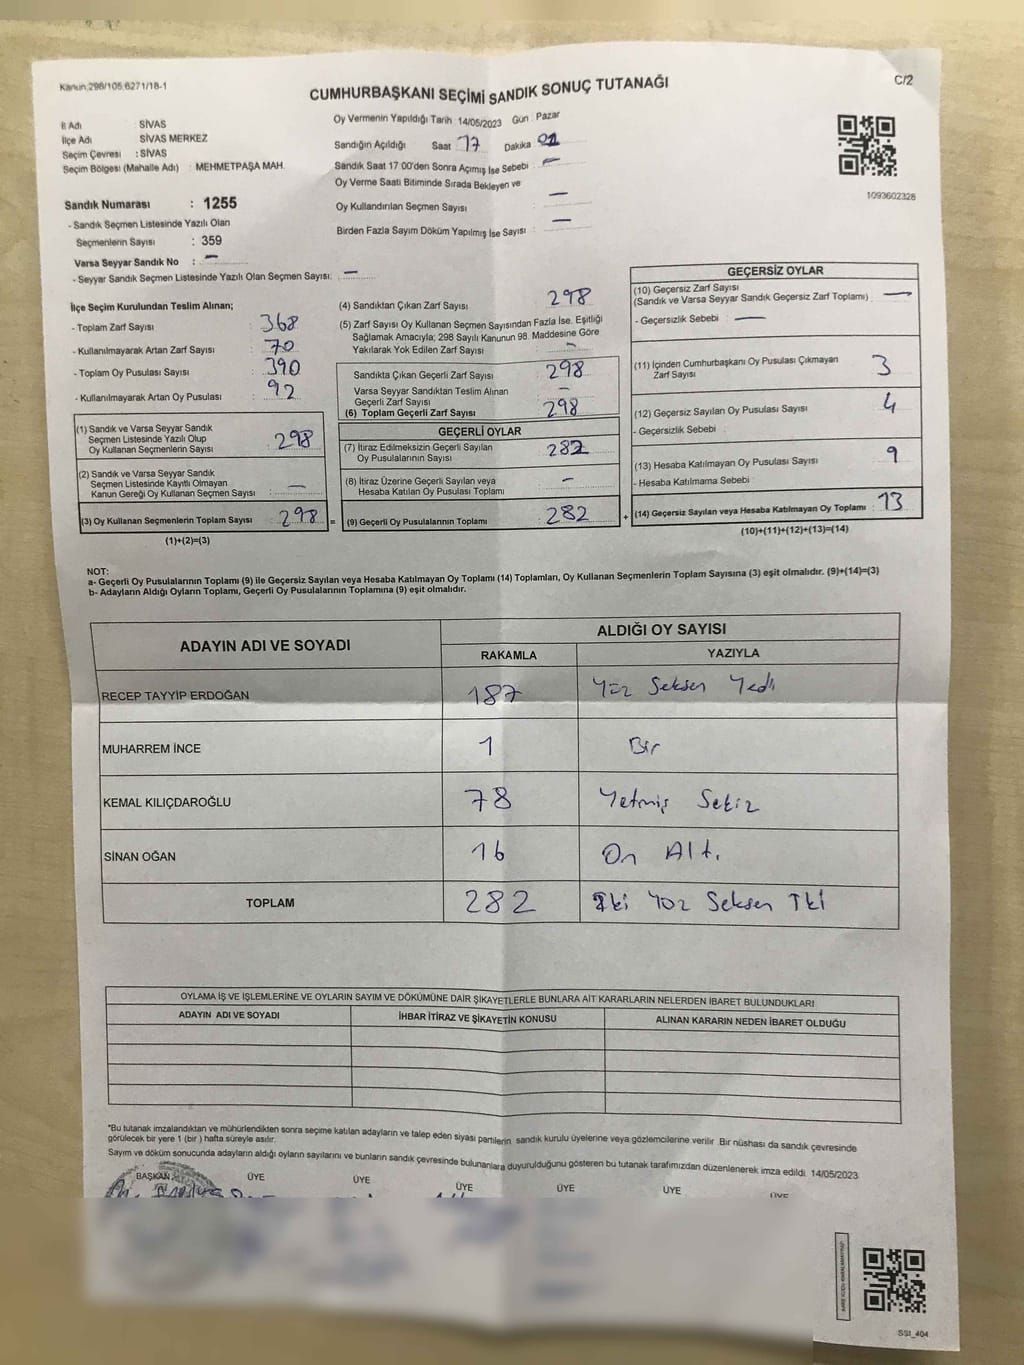 Kanun:298/105;6271/18-1
C/2
CUMHURBAŞKANI SEÇİMİ SANDIK SONUÇ TUTANAĞI
İl Adı : SİVAS
İlçe Adı : SİVAS MERKEZ
Seçim Çevresi : SİVAS
Seçim Bölgesi (Mahalle Adı) : MEHMETPAŞA MAH.
Sandık Numarası : 1255
- Sandık Seçmen Listesinde Yazılı Olan
Seçmenlerin Sayısı : 359
Varsa Seyyar Sandık No : —
- Seyyar Sandık Seçmen Listesinde Yazılı Olan Seçmen Sayısı: —
Oy Vermenin Yapıldığı Tarih : 14/05/2023 Gün : Pazar
Sandığın Açıldığı Saat 17 Dakika
Sandık Saat 17:00'den Sonra Açımış İse Sebebi : —
Oy Verme Saati Bitiminde Sırada Bekleyen ve
Oy Kullandırılan Seçmen Sayısı : —
Birden Fazla Sayım Döküm Yapılmış İse Sayısı : —
1093602328
İlçe Seçim Kurulundan Teslim Alınan;
- Toplam Zarf Sayısı : 368
- Kullanılmayarak Artan Zarf Sayısı : 70
- Toplam Oy Pusulası Sayısı : 390
- Kullanılmayarak Artan Oy Pusulası : 92
(1) Sandık ve Varsa Seyyar Sandık
Seçmen Listesinde Yazılı Olup
Oy Kullanan Seçmenlerin Sayısı : 298
(2) Sandık ve Varsa Seyyar Sandık
Seçmen Listesinde Kayıtlı Olmayan
Kanun Gereği Oy Kullanan Seçmen Sayısı : —
(3) Oy Kullanan Seçmenlerin Toplam Sayısı : 298
(1)+(2)=(3)
=
(4) Sandıktan Çıkan Zarf Sayısı 298
(5) Zarf Sayısı Oy Kullanan Seçmen Sayısından Fazla İse. Eşitliği
Sağlamak Amacıyla; 298 Sayılı Kanunun 98. Maddesine Göre
Yakılarak Yok Edilen Zarf Sayısı : —
Sandıkta Çıkan Geçerli Zarf Sayısı : 298
Varsa Seyyar Sandıktan Teslim Alınan
Geçerli Zarf Sayısı : —
(6) Toplam Geçerli Zarf Sayısı : 298
GEÇERLİ OYLAR
(7) İtiraz Edilmeksizin Geçerli Sayılan
Oy Pusulalarının Sayısı : 282
(8) İtiraz Üzerine Geçerli Sayılan veya
Hesaba Katılan Oy Pusulası Toplamı : —
(9) Geçerli Oy Pusulalarının Toplamı : 282
+
GEÇERSİZ OYLAR
(10) Geçersiz Zarf Sayısı
(Sandık ve Varsa Seyyar Sandık Geçersiz Zarf Toplamı) : —
- Geçersizlik Sebebi : —
(11) İçinden Cumhurbaşkanı Oy Pusulası Çıkmayan
Zarf Sayısı : 3
(12) Geçersiz Sayılan Oy Pusulası Sayısı : 4
- Geçersizlik Sebebi :
(13) Hesaba Katılmayan Oy Pusulası Sayısı : 9
- Hesaba Katılmama Sebebi :
(14) Geçersiz Sayılan veya Hesaba Katılmayan Oy Toplamı : 13
(10)+(11)+(12)+(13)=(14)
NOT:
a- Geçerli Oy Pusulalarının Toplamı (9) ile Geçersiz Sayılan veya Hesaba Katılmayan Oy Toplamı (14) Toplamları, Oy Kullanan Seçmenlerin Toplam Sayısına (3) eşit olmalıdır. (9)+(14)=(3)
b- Adayların Aldığı Oyların Toplamı, Geçerli Oy Pusulalarının Toplamına (9) eşit olmalıdır.
ADAYIN ADI VE SOYADI
ALDIĞI OY SAYISI
RAKAMLA YAZIYLA
RECEP TAYYİP ERDOĞAN 187 Yüz Seksen Yedi
MUHARREM İNCE 1 Bir
KEMAL KILIÇDAROĞLU 78 Yetmiş Sekiz
SİNAN OĞAN 16 On Altı
TOPLAM 282 İki Yüz Seksen İki
OYLAMA İŞ VE İŞLEMLERİNE VE OYLARIN SAYIM VE DÖKÜMÜNE DAİR ŞİKAYETLERLE BUNLARA AİT KARARLARIN NELERDEN İBARET BULUNDUKLARI
ADAYIN ADI VE SOYADI İHBAR İTİRAZ VE ŞİKAYETİN KONUSU ALINAN KARARIN NEDEN İBARET OLDUĞU
"Bu tutanak imzalandıktan ve mühürlendikten sonra seçime katılan adayların ve talep eden siyasi partilerin sandık kurulu üyelerine veya gözlemcilerine verilir. Bir nüshası da sandık çevresinde
görülecek bir yere 1 (bir ) hafta süreyle asılır.
Sayım ve döküm sonucunda adayların aldığı oyların sayılarını ve bunların sandık çevresinde bulunanlara duyurulduğunu gösteren bu tutanak tarafımızdan düzenlenerek imza edildi. 14/05/2023
BAŞKAN ÜYE ÜYE ÜYE ÜYE ÜYE ÜYE
SSI_404